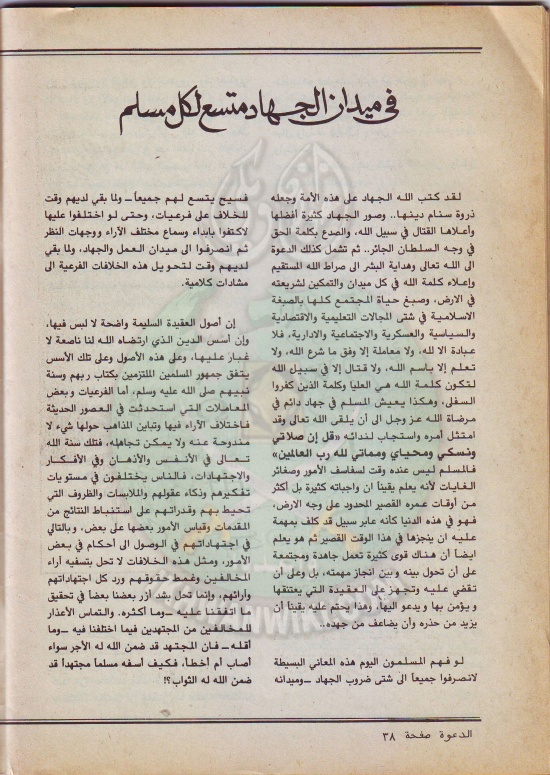 في ميدان الجهاد متسع لكل مسلم
لقد كتب الله الجهاد على هذه الأمة وجعله
ذروة سنام دينها.. وصور الجهاد كثيرة أفضلها
وأعلاها القتال في سبيل الله، والصدع بكلمة الحق
في وجه السلطان الجائر.. ثم تشمل كذلك الدعوة
الى الله تعالى وهداية البشر الى صراط الله المستقيم
وإعلاء كلمة الله في كل ميدان والتمكين لشريعته
في الارض، وصبغ حياة المجتمع كلها بالصبغة
الاسلامية في شتى المجالات التعليمية والاقتصادية
والسياسية والعسكرية والاجتماعية والادارية، فلا
عبادة الا لله، ولا معاملة إلا وفق ما شرع الله، ولا
تعلم إلا باسم الله، ولا قتال إلا في سبيل الله
لتكون كلمة الله هي العليا وكلمة الذين كفروا
السفلى، وهكذا يعيش المسلم في جهاد دائم في
مرضاة الله عز وجل الى أن يلقى الله تعالى وقد
امتثل أمره واستجاب لندائه «قل إن صلاتي
ونسكي ومحياي ومماتي لله رب العالمين»
فالمسلم ليس عنده وقت لسفاسف الأمور وصغائر
الغايات لأنه يعلم يقيناً أن واجباته كثيرة بل أكثر
من أوقات عمره القصير المحدود على وجه الارض،
فهو في هذه الدنيا كأنه عابر سبيل قد كلف بمهمة
عليه ان ينجزها في هذا الوقت القصير ثم هو يعلم
ايضاً أن هناك قوى كثيرة تعمل جاهدة ومجتمعة
على أن تحول بينه وبين انجاز مهمته، بل وعلى أن
تقضي عليه وتجهز على العقيدة التي يعتنقها
ويؤمن بها ويدعو اليها، وهذا يحتم عليه يقيناً أن
يزيد من حذره وأن يضاعف من جهده..
لو فهم المسلمون اليوم هذه المعاني البسيطة
لانصرفوا جميعاً الى شتى ضروب الجهاد ــ وميدانه
فسيح يتسع لهم جميعاً ــ ولما بقي لديهم وقت
للخلاف على فرعيات، وحتى لو اختلفوا عليها
لاكتفوا بابداء وسماع مختلف الآراء ووجهات النظر
ثم انصرفوا الى ميدان العمل والجهاد، ولما بقي
لديهم وقت لتحويل هذه الخلافات الفرعية الى
مشادات كلامية.
إن أصول العقيدة السليمة واضحة لا لبس فيها،
وإن أسس الدين الذي ارتضاه الله لنا ناصعة لا
غبار عليها، وعلى هذه الأصول وعلى تلك الأسس
يتفق جمهور المسلمين الملتزمين بكتاب ربهم وسنة
نبيهم صلى الله عليه وسلم، أما الفرعيات وبعض
المعاملات التي استحدثت في العصور الحديثة
فاختلاف الآراء فيها وتباين المذاهب حولها شيء لا
مندوحة عنه ولا يمكن تجاهله، فتلك سنة الله
تعالى في الأنفس والأذهان وفي الأفكار
والاجتهادات، فالناس يختلفون في مستويات
تفكيرهم وذكاء عقولهم والملابسات والظروف التي
تحيط بهم وقدراتهم على استنباط النتائج من
المقدمات وقياس الأمور بعضها على بعض، وبالتالي
في اجتهاداتهم في الوصول الى أحكام في بعض
الأمور، ومثل هذه الخلافات لا تحل بتسفيه أراء
المخالفين وغمط حقوقهم ورد كل اجتهاداتهم
وآرائهم، وإنما تحل بشد أزر بعضنا بعضاً في تحقيق
ما اتفقنا عليه ــ وما أكثره. والتماس الأعذار
للمخالفين من المجتهدين فيما اختلفنا فيه ــ وما
أقله ــ فان المجتهد قد ضمن الله له الأجر سواء
أصاب أم أخطأ، فكيف أسفه مسلماً مجتهداً قد
ضمن الله له الثواب؟!
الدعوة صفحة ٣٨